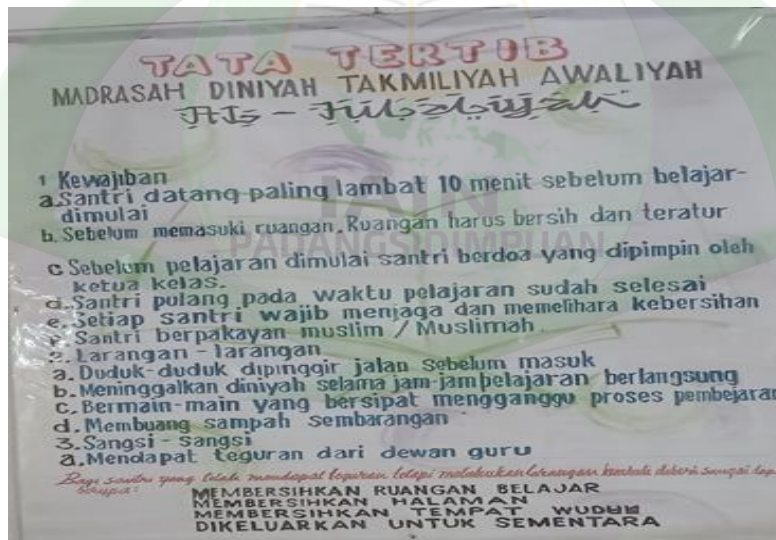 TATA TERTIB
MADRASAH DINIYAH TAKMILIYAH AWALIYAH
1 Kewajiban
a. Santri datang paling lambat 10 menit sebelum belajar-
dimulai
b. Sebelum memasuki ruangan, Ruangan harus bersih dan teratur
c Sebelum pelajaran dimulai santri berdoa yang dipimpin oleh
ketua kelas.
d. Santri pulang pada waktu pelajaran sudah selesai
e. Setiap santri wajib menjaga dan memelihara kebersihan
f. Santri berpakayan muslim / Muslimah.
2. Larangan - larangan
a. Duduk-duduk dipinggir jalan Sebelum masuk
b. Meninggalkan diniyah selama jam-jam pelajaran berlangsung
c. Bermain-main yang bersipat mengganggu proses pembejaran
d. Membuang sampah sembarangan
3. Sangsi - sangsi
a. Mendapat teguran dari dewan guru
Bagi santri yang telah mendapat teguran tetapi melakukan larangan kembali diberi sangsi
berupa:
MEMBERSIHKAN RUANGAN BELAJAR
MEMBERSIHKAN HALAMAN
MEMBERSIHKAN TEMPAT WUDUU
DIKELUARKAN UNTUK SEMENTARA
IAIN
PADANGSIDIMPUAN